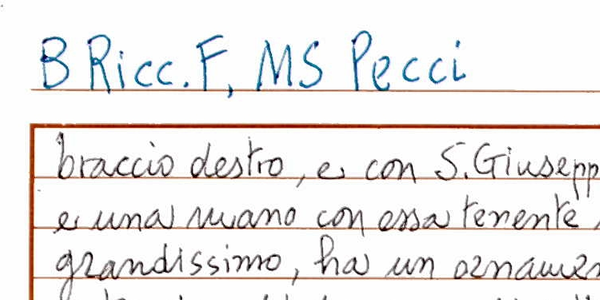 B Ricc. F, MS Pecci
braccio destro, e con S. Giusepp
e una mano con essa tenente
grandissimo, ha un ornamen